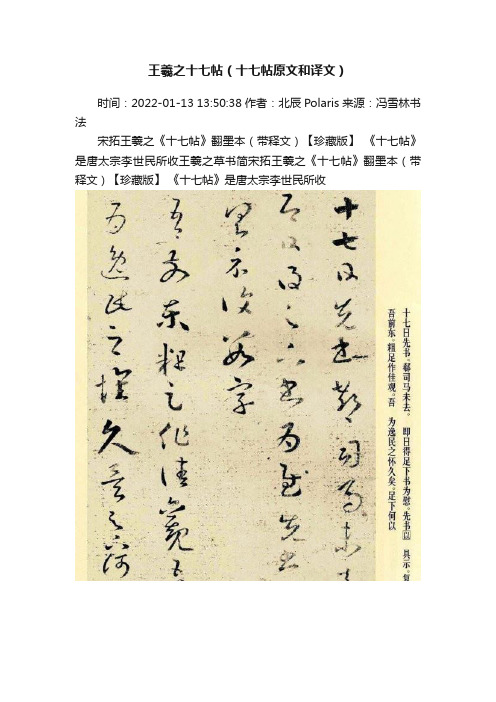 王羲之十七帖（十七帖原文和译文）
时间：2022-01-13 13:50:38 作者：北辰Polaris 来源：冯雪林书
法
宋拓王羲之《十七帖》翻墨本（带释文）【珍藏版】 《十七帖》
是唐太宗李世民所收王羲之草书简宋拓王羲之《十七帖》翻墨本（带
释文）【珍藏版】 《十七帖》是唐太宗李世民所收
十七日先书。郗司马未去。 即日得足下书为慰。先书 具示。复
吾前东。粗足作佳观。吾 为逸民之怀久矣。足下何以
十七日先書郗司馬未去
即日得足下書為慰先書
具示復數字
吾前東粗足作佳觀吾
為逸民之懷久矣足下何